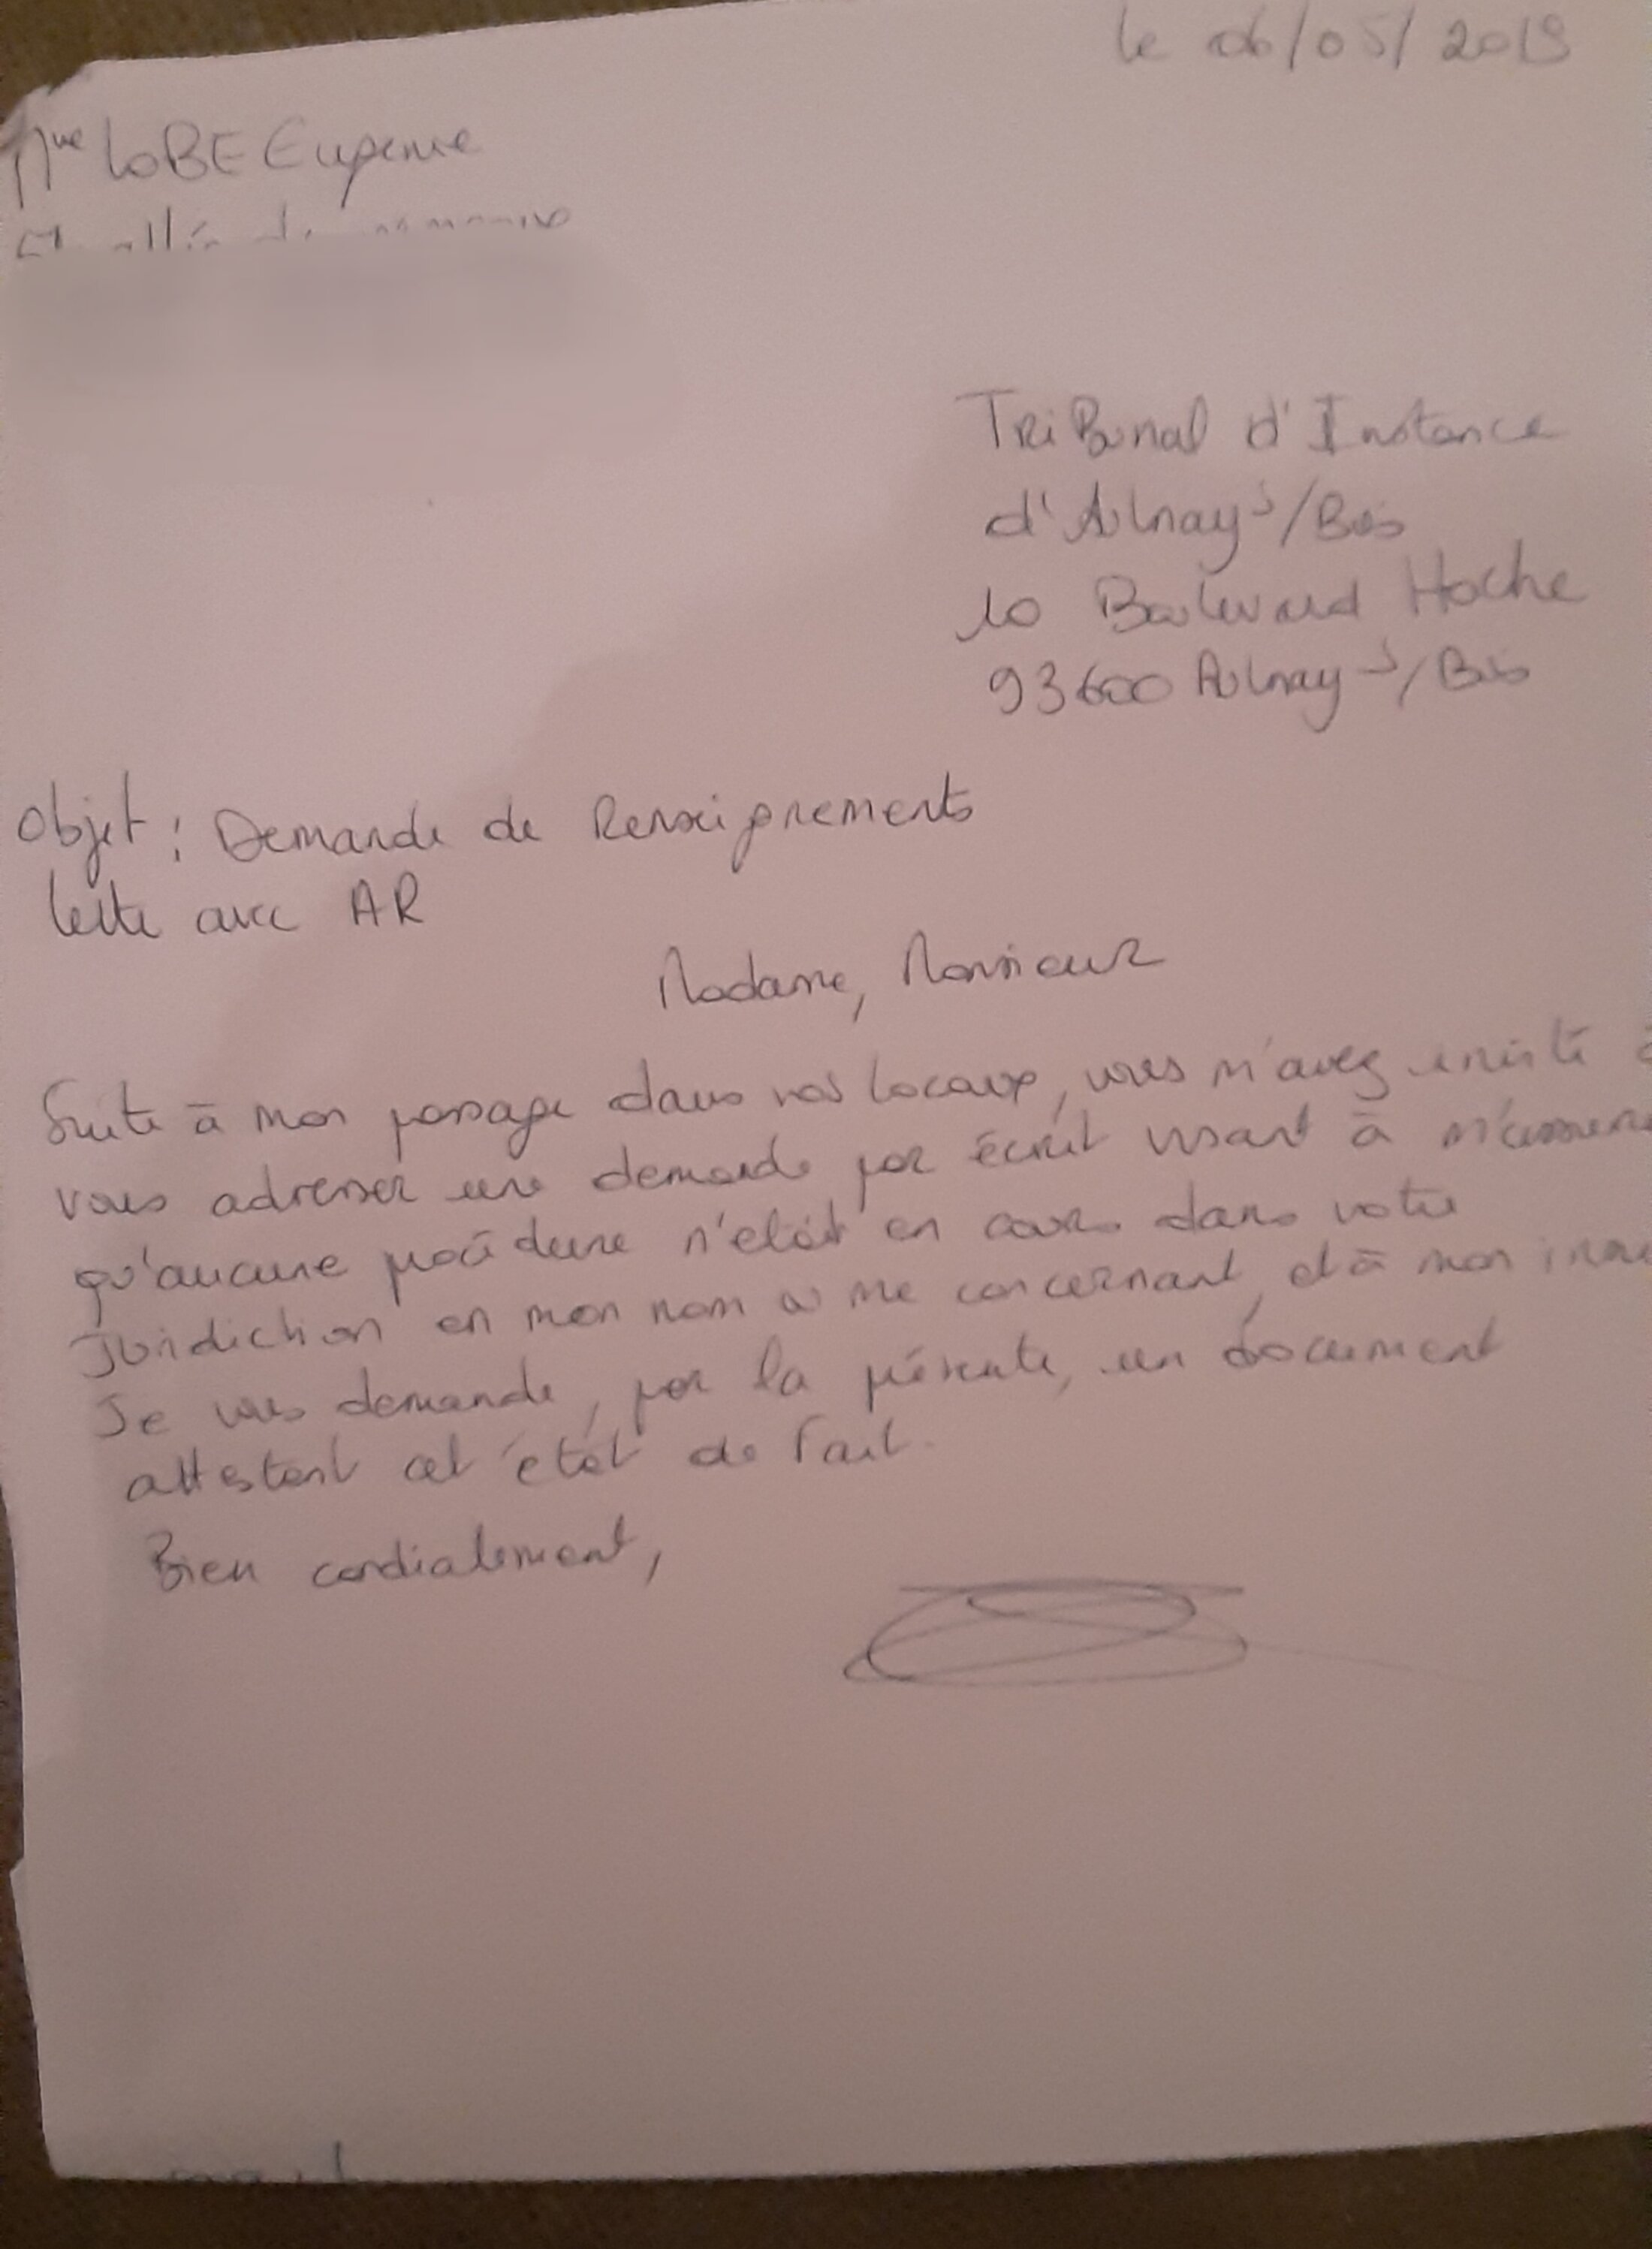 le 06/05/2019
Mme LOBE Eugenie
Tribunal d'Instance
d'Aulnay s/Bois
10 Boulevard Hoche
93600 Aulnay s/Bois
Objet : Demande de Renseignements
lettre avec AR
Madame, Monsieur
Suite à mon passage dans vos locaux, vous m'avez à
vous adresser une demande par écrit visant à m'assurer
qu'aucune procédure n'était en cours dans votre
Juridiction en mon nom ou me concernant, et à mon
Je vous demande, par la présente, un document
attestant cet état de fait.
Bien cordialement,